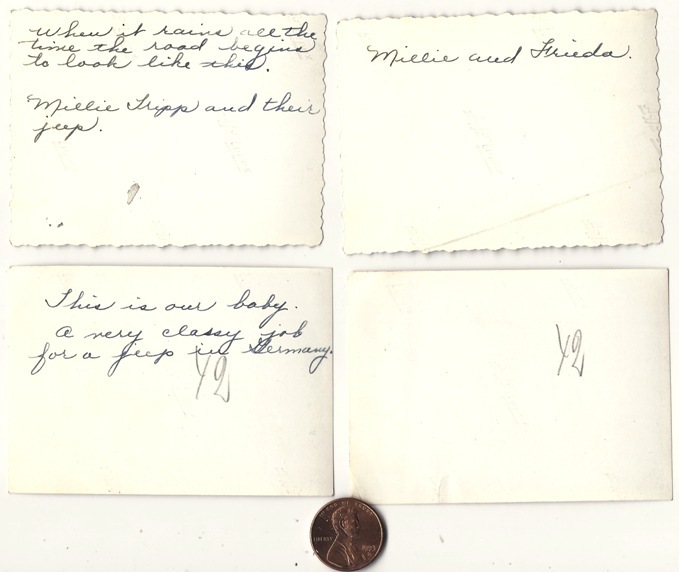 When it rains all the
time the road begins
to look like this.
Millie Tripp and their
jeep.
Millie and Frieda.
This is our baby.
A very classy job
for a jeep in Germany.
42
42
LIBERTY